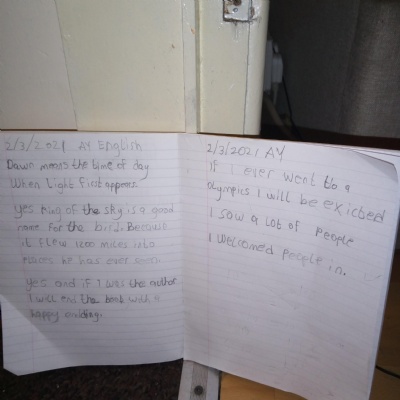 2/3/2021 AY English
Dawn means the time of day
When Light first appears.
yes king of the sky is a good
name for the bird. Because
it flew 1200 miles into
places he has ever seen.
yes and if I was the author
I will end the book with a
happy ending.
2/3/2021 AY
if I ever went to a
olympics I will be exicted
I saw a lot of people
I welcomed people in.